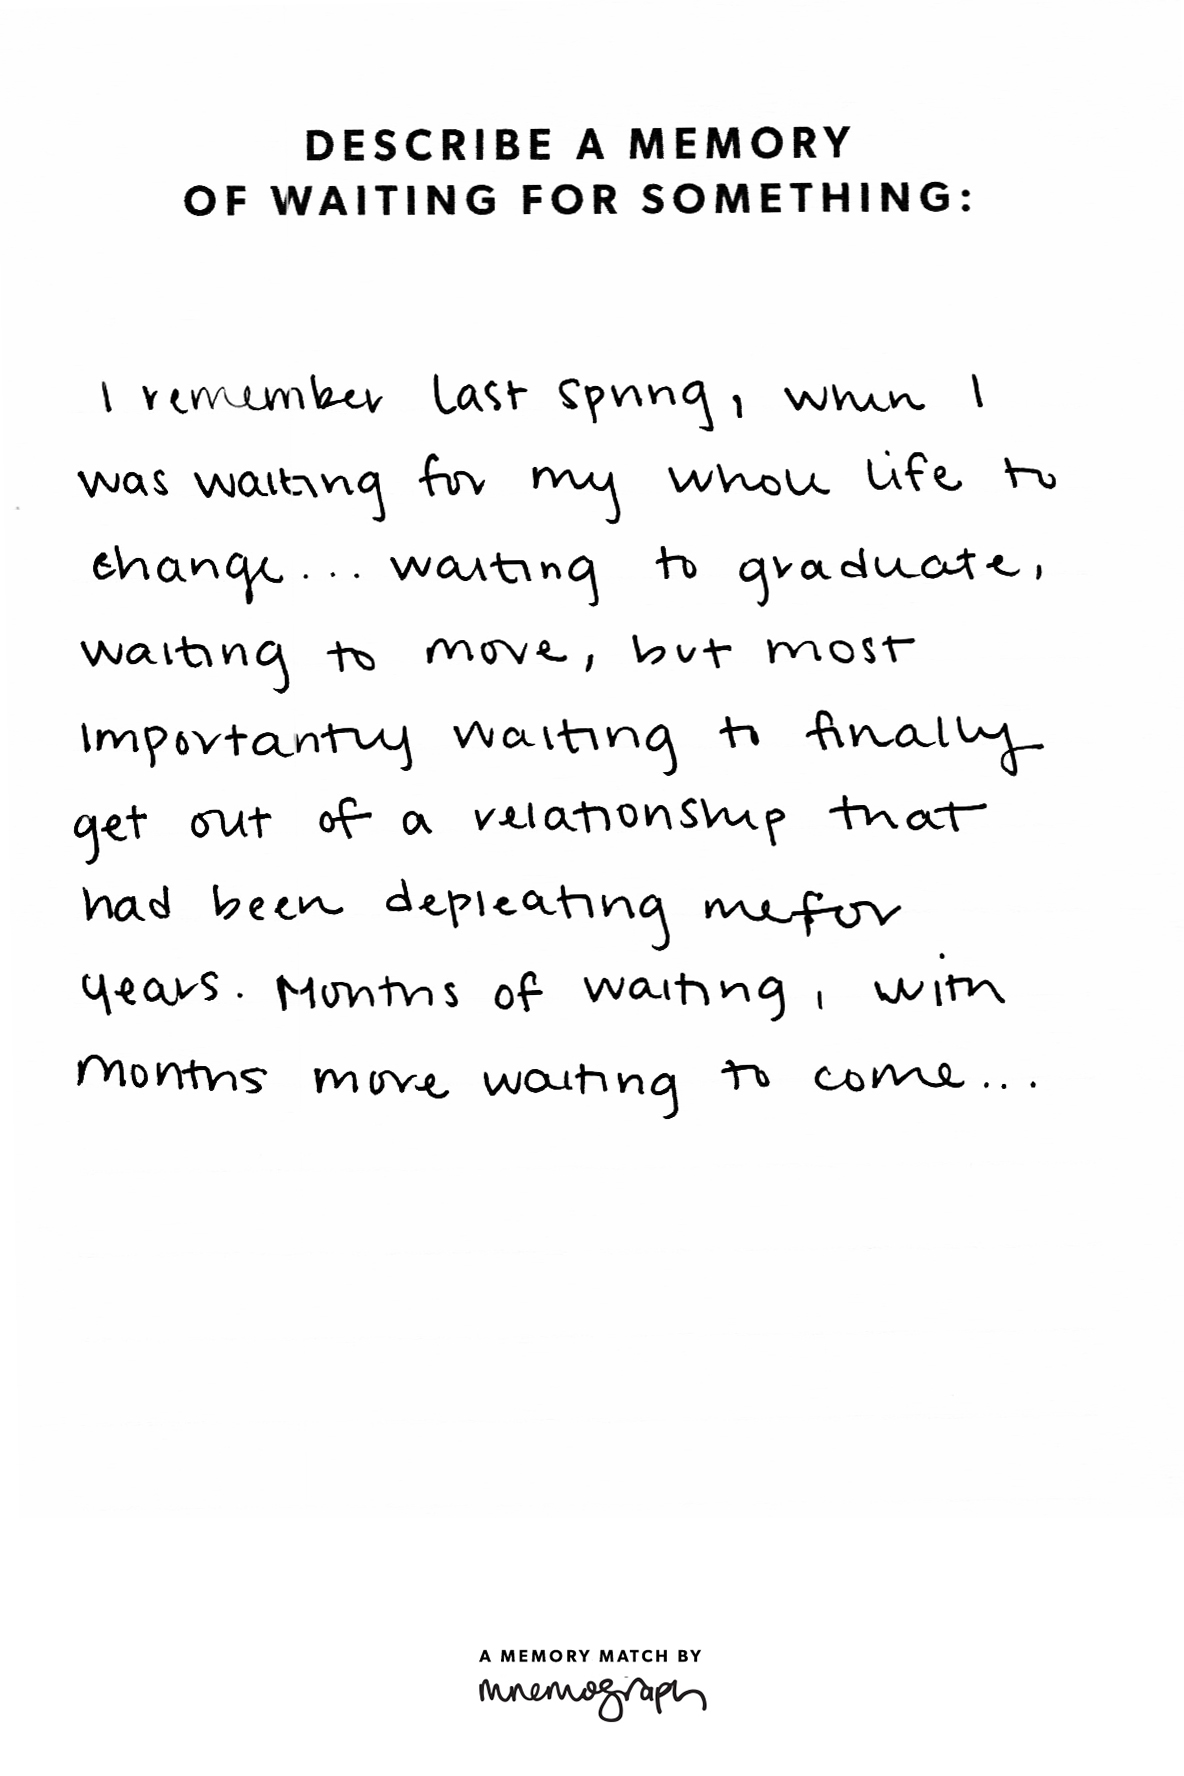 DESCRIBE A MEMORY
OF WAITING FOR SOMETHING:
I remember last spring, when I
was waiting for my whole life to
change... waiting to graduate,
waiting to move, but most
importantly waiting to finally
get out of a relationship that
had been depleating me for
years. Months of waiting, with
months more waiting to come...
A MEMORY MATCH BY
mnemograph